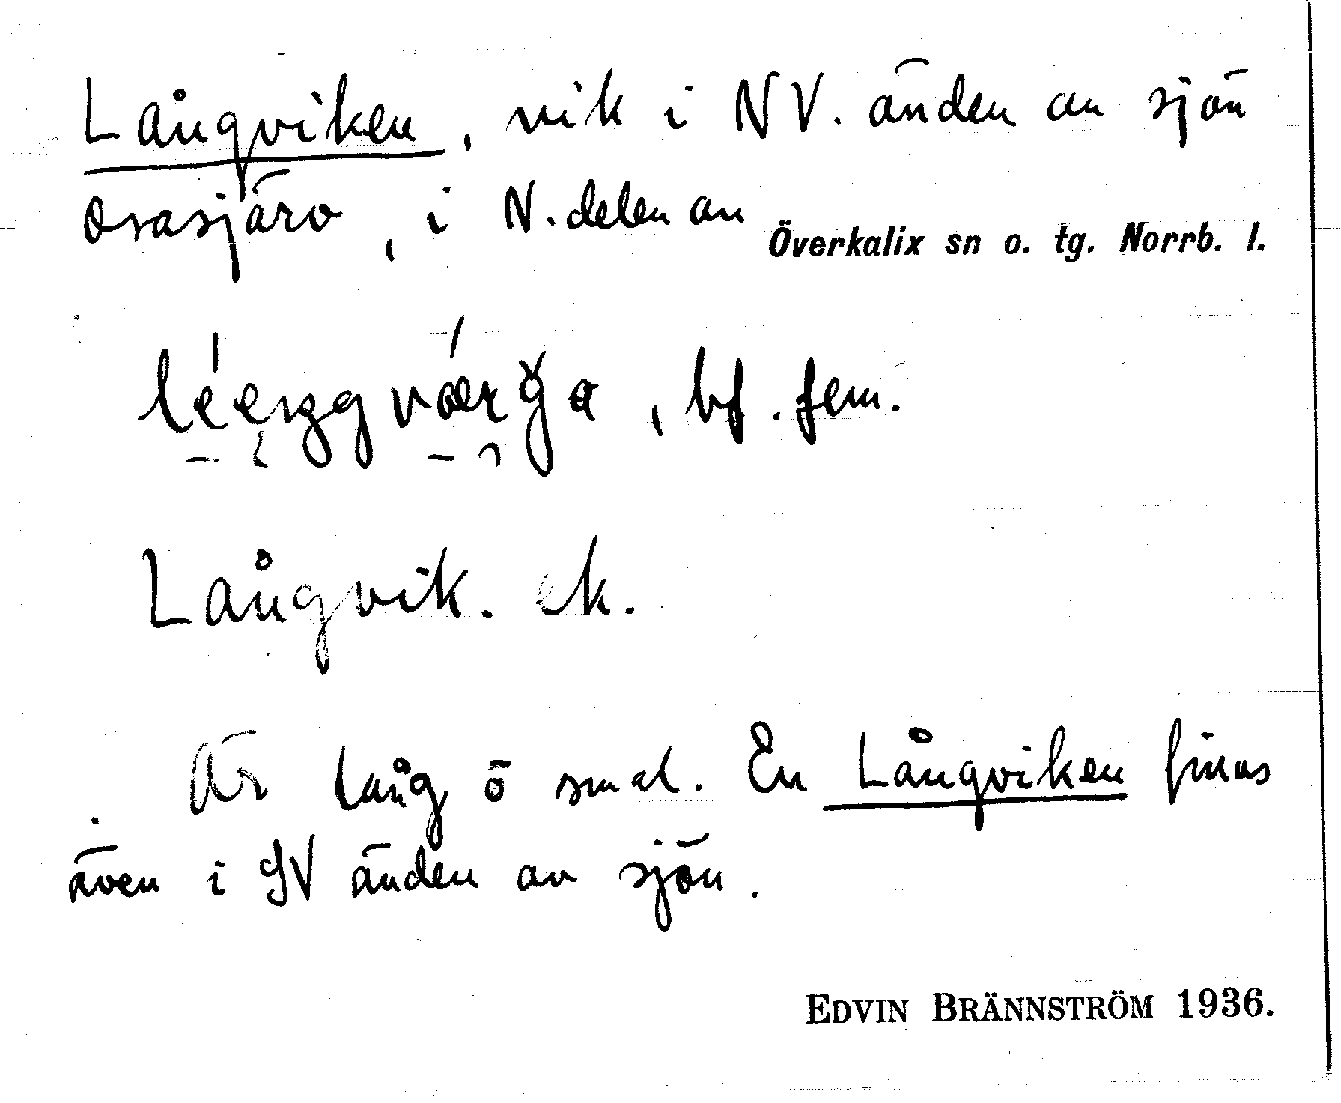 Långviken, vik i NV. änden av sjön
Osasjärv, i N. delen av Överkalix sn o. tg. Norrb. l.
, bf. fem.
Långvik. ek.
Är lång o smal. En Långviken finns
även i SV änden av sjön.
EDVIN BRÄNNSTRÖM 1936.